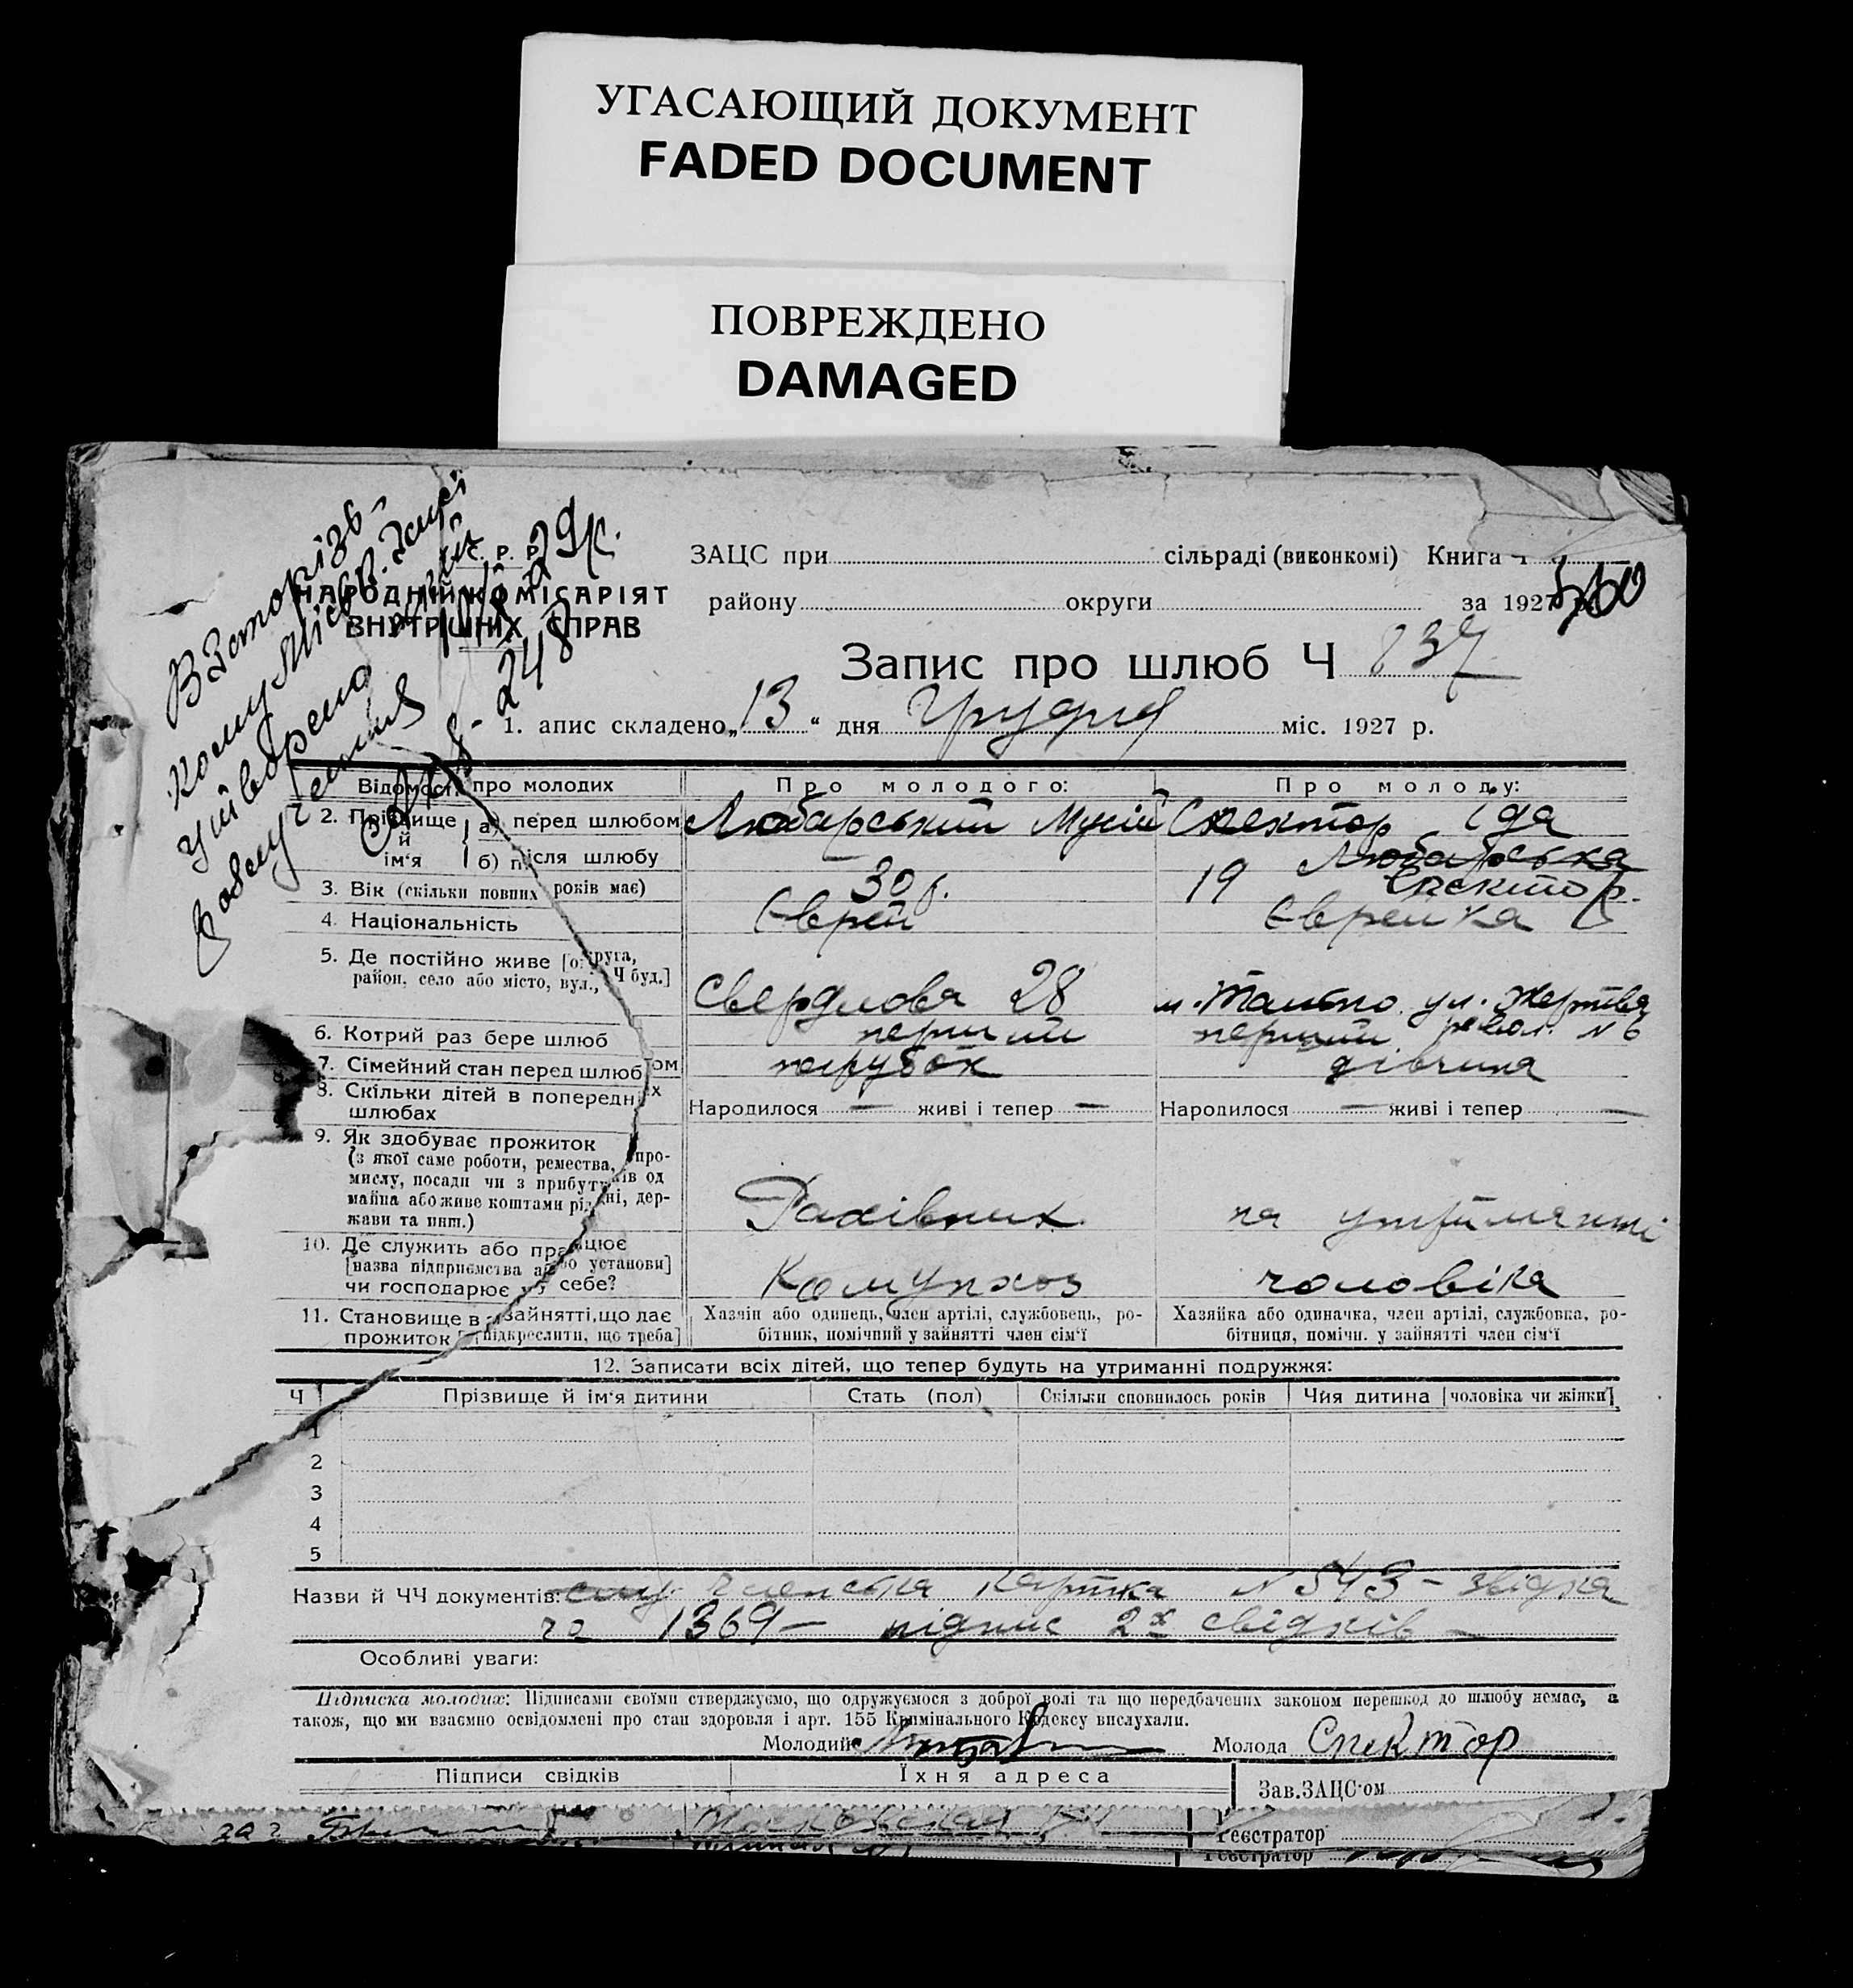 УГАСАЮЩИЙ ДОКУМЕНТ
FADED DOCUMENT
ПОВРЕЖДЕНО
DAMAGED
В Запоріз-
утворено
29р.
248
С. Р. Р.
НАРОДНІЙ КОМІСАРІЯТ
ВНУТРІШНІХ СПРАВ
ЗАЦС при сільраді (виконкомі) Книга Ч
району округи за 1927
Запис про шлюб Ч 837
1. апис складено „13“ дня Грудня міс. 1927 р.
Відомості про молодих Про молодого: Про молоду:
2. Прізвище й ім'я а) перед шлюбом Любарський Мусій Спектор Іда
б) після шлюбу Любарська
Спектор
3. Вік (скільки повних років має) 30 р. 19
4. Національність Єврей Єврейка
5. Де постійно живе [округа,
район, село або місто, вул., Ч буд.] Свердлова 28 м. Тально ул. Жертва
револ. № 6
6. Котрий раз бере шлюб перший перший
7. Сімейний стан перед шлюбом парубок дівчина
8. Скільки дітей в попередніх
шлюбах Народилося — живі і тепер — Народилося — живі і тепер —
9. Як здобуває прожиток
(з якої саме роботи, ремества, про-
мислу, посади чи з прибутків од
майна або живе коштами рідні, дер-
жави та инш.) Рахівник на утриманні
10. Де служить або працює
[назва підприємства або установи]
чи господарює у себе? Комунхоз чоловіка
11. Становище в зайнятті, що дає
прожиток [підкреслити, що треба]
Хазяїн або одинець, член артілі, службовець, ро-
бітник, помічний у зайнятті член сім'ї
Хазяйка або одиначка, член артілі, службовка, ро-
бітниця, помічн. у зайнятті член сім'ї
12. Записати всіх дітей, що тепер будуть на утриманні подружжя:
Ч Прізвище й ім'я дитини Стать (пол) Скільки сповнилось років Чия дитина [чоловіка чи жінки]
1
2
3
4
5
Назви й ЧЧ документів: членська картка N 543 – звідка
1369 – підпис 2х свідків –
Особливі уваги:
Підписка молодих: Підписами своїми стверджуємо, що одружуємося з доброї волі та що передбачених законом перешкод до шлюбу немає, а
також, що ми взаємно освідомлені про стан здоровля і арт. 155 Кримінального Кодексу вислухали.
Молодий Молода Спектор
Підписи свідків Їхня адреса Зав. ЗАЦС'ом
Реєстратор
Реєстратор